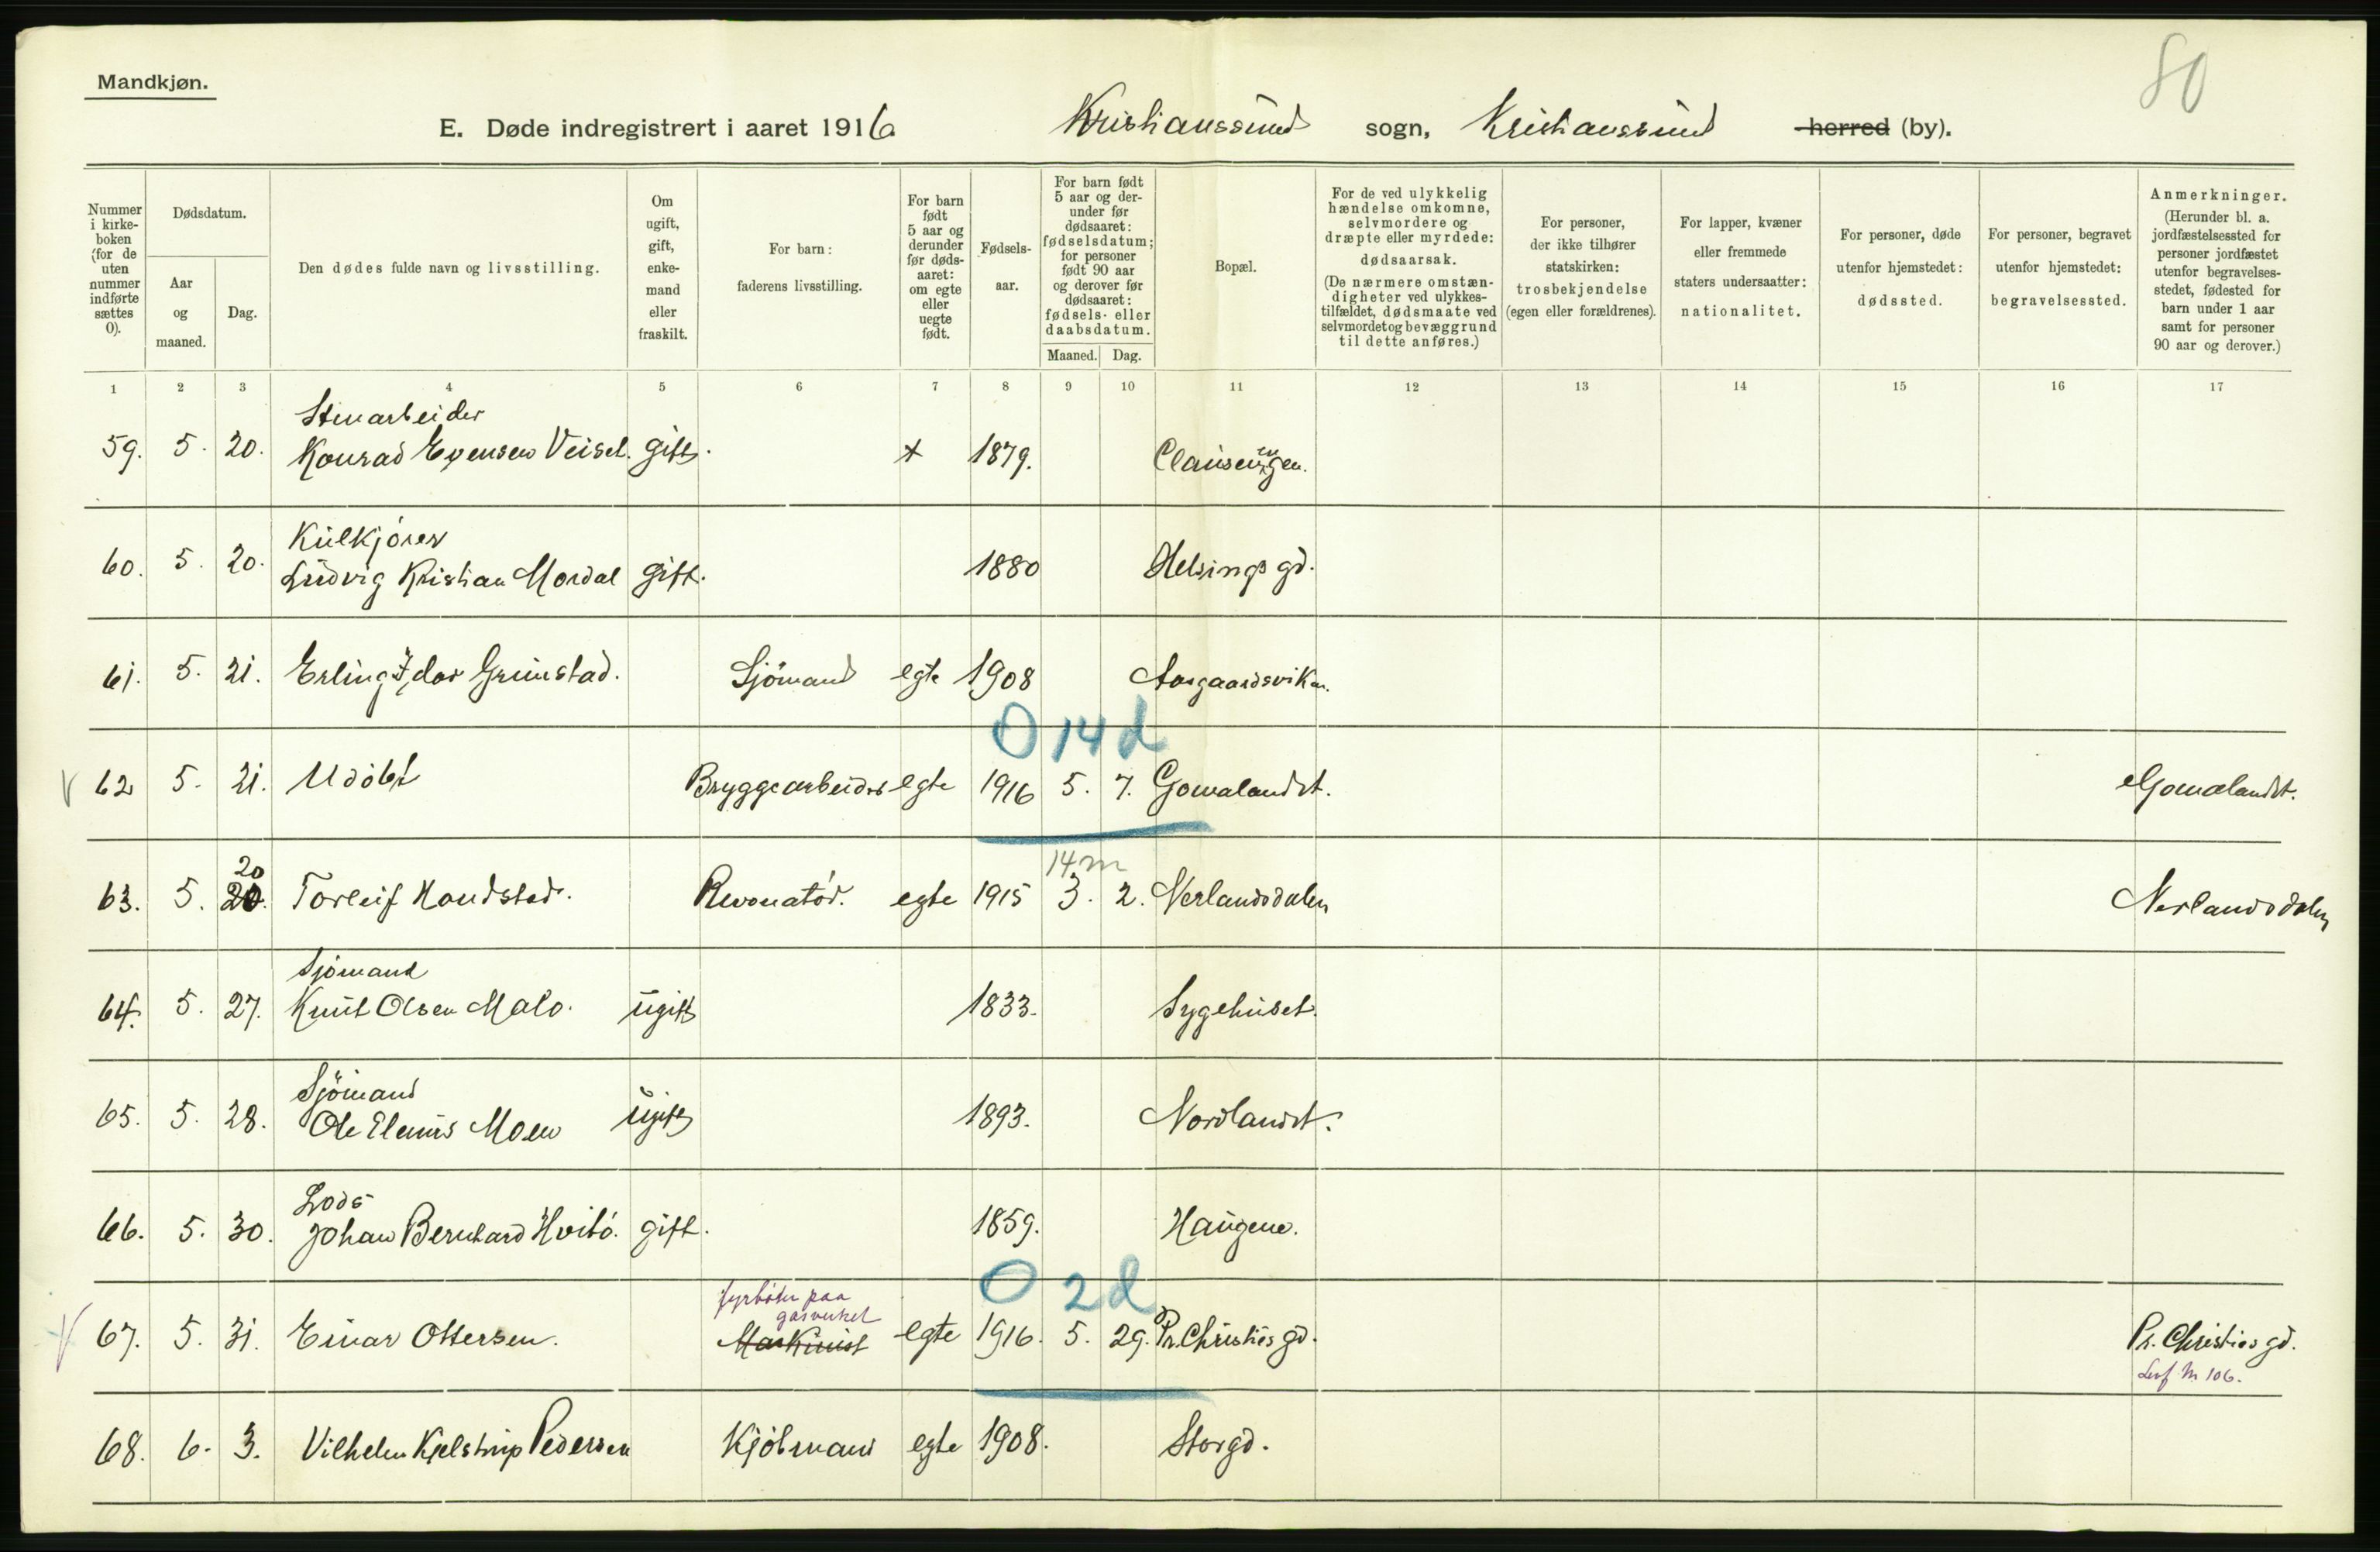 80
Mandkjøn.
E. Døde indregistrert i aaret 1916 Kristianssund sogn, Kristianssund herred (by).
Nummer i kirkeboken (for de uten nummer indførte sættes 0).
Dødsdatum.
Aar og maaned.
Dag.
Den dødes fulde navn og livsstilling.
Om ugift, gift, enkemand eller fraskilt.
For barn: faderens livsstilling.
For barn født 5 aar og derunder før dødsaaret: om egte eller uegte født.
Fødselsaar.
For barn født 5 aar og derunder før dødsaaret: fødselsdatum; for personer født 90 aar og derover før dødsaaret: fødsels- eller daabsdatum.
Maaned. Dag.
Bopæl.
For de ved ulykkelig hændelse omkomne, selvmordere og dræpte eller myrdede: dødsaarsak. (De nærmere omstændigheter ved ulykkestilfældet, dødsmaate ved selvmordet og bevæggrund til dette anføres.)
For personer, der ikke tilhører statskirken: trosbekjendelse (egen eller forældrenes).
For lapper, kvæner eller fremmede staters undersaatter: nationalitet.
For personer, døde utenfor hjemstedet: dødssted.
For personer, begravet utenfor hjemstedet: begravelsessted.
Anmerkninger. (Herunder bl. a. jordfæstelsessted for personer jordfæstet utenfor begravelsesstedet, fødested for barn under 1 aar samt for personer 90 aar og derover.)
1 2 3 4 5 6 7 8 9 10 11 12 13 14 15 16 17
Stenarbeider
59. 5. 20. Konrad Evensen Veisel. gift. 1879. Clausengen.
Kulkjører
60. 5. 20. Ludvig Kristian Mordal gift. 1880 Helsings gd.
61. 5. 21. Erling Grimstad. Sjömand egte 1908 Aasgaardsviken.
0 14 d
62 5. 21. Udöbt Bryggearbeider egte 1916 5. 7. Gomalandet. Gomalandet.
20 14 m
63. 5. 20. Torleif Hondstad. egte 1915 3. 2. Nerlandsdalen Nerlandsdalen
Sjömand
64. 5. 27. Knut Olsen Malo. ugift 1833. Sygehuset.
Sjömand
65. 5. 28. Ole Elenus Moen ugift 1893. Nordlandet.
Lods
66. 5. 30. Johan Bernhard Hvitö. gift. 1859. Haugene.
0 2 d
fyrböter paa
gasverket
67. 5. 31. Einar Ottersen. Maskinist egte 1916. 5. 29. Pr. Christies gd. Pr. Christies gd.
106.
68. 6. 3. Vilhelm Kjelstrup Pedersen Kjöbmand egte 1908. Storgd.